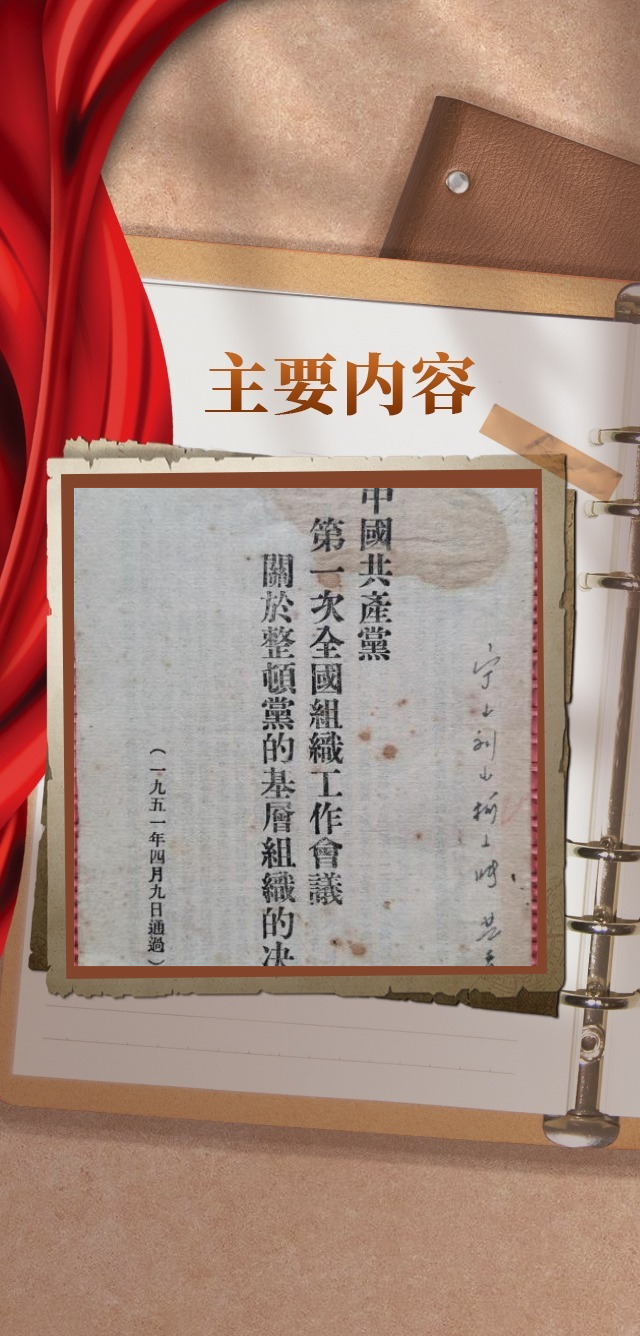 主要内容
中國共產黨
第一次全國組織工作會議
關於整頓黨的基層組織的决
（一九五一年四月九日通過）